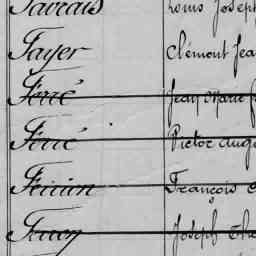 Favrais Louis Joseph
Fayer Clément Jea
Ferré Jean Marie F
Ferré Victor Aug
François
Joseph